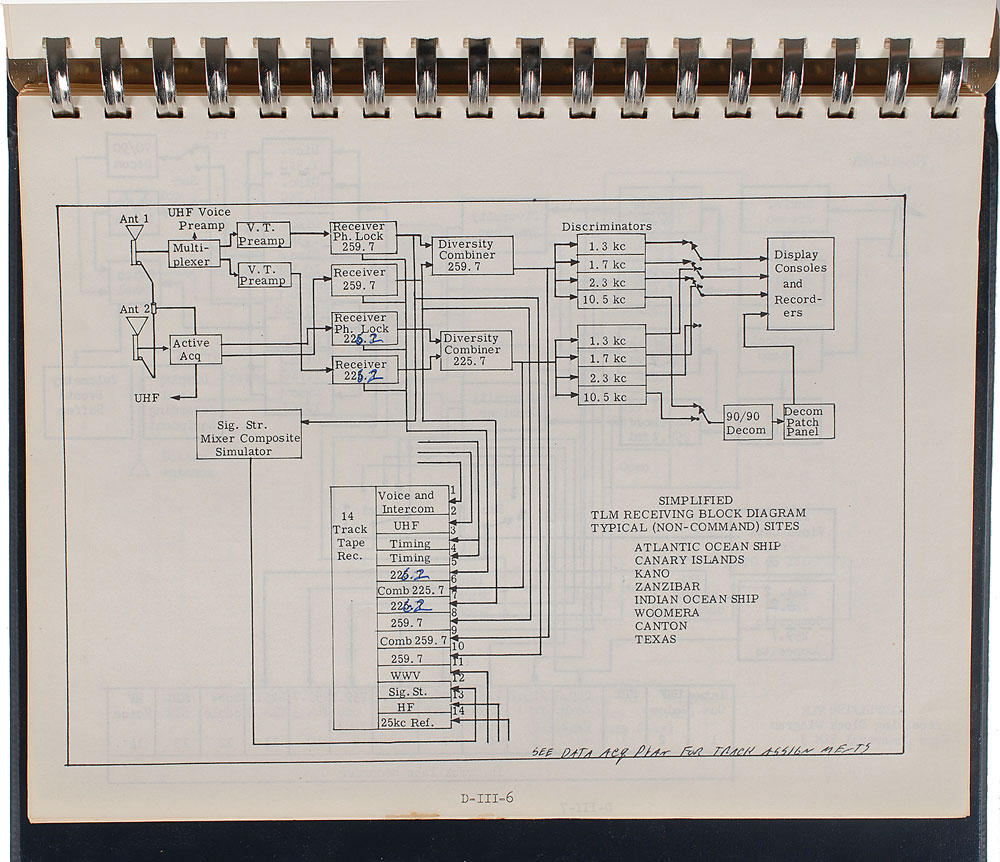 Ant 1
UHF Voice
Preamp
Multi-
plexer
V. T.
Preamp
V. T.
Preamp
Receiver
Ph. Lock
259.7
Receiver
259.7
Diversity
Combiner
259.7
Ant 2
Active
Acq
UHF
Receiver
Ph. Lock
Receiver
Diversity
Combiner
225.7
Discriminators
1.3 kc
1.7 kc
2.3 kc
10.5 kc
1.3 kc
1.7 kc
2.3 kc
10.5 kc
Display
Consoles
and
Record-
ers
90/90
Decom
Decom
Patch
Panel
Sig. Str.
Mixer Composite
Simulator
14
Track
Tape
Rec.
Voice and
Intercom
UHF
Timing
Timing
Comb 225.7
259.7
Comb 259.7
259.7
WWV
Sig. St.
HF
25kc Ref.
1
2
3
4
5
6
7
8
9
10
11
12
13
14
SIMPLIFIED
TLM RECEIVING BLOCK DIAGRAM
TYPICAL (NON-COMMAND) SITES
ATLANTIC OCEAN SHIP
CANARY ISLANDS
KANO
ZANZIBAR
INDIAN OCEAN SHIP
WOOMERA
CANTON
TEXAS
SEE DATA ACQ PLAN FOR TRACK ASSIGN MENTS
D-III-6